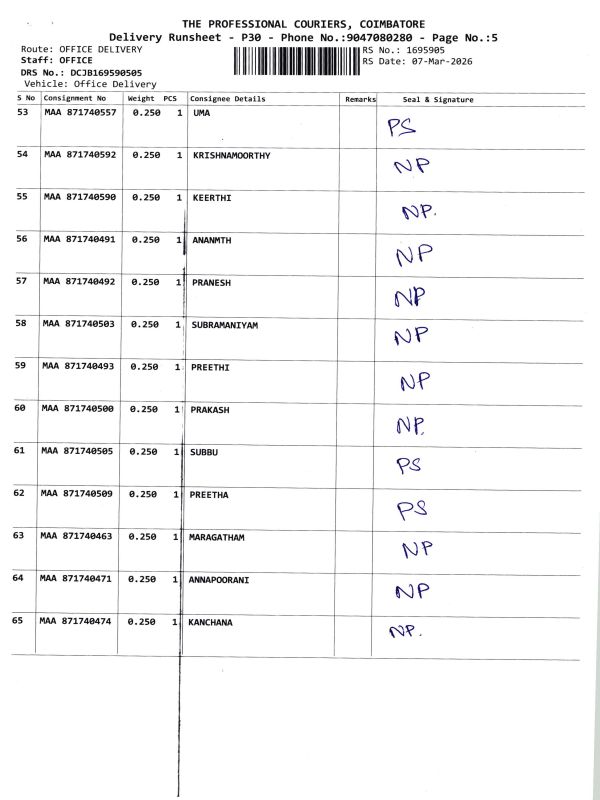 THE PROFESSIONAL COURIERS, COIMBATORE
Delivery Runsheet - P30 - Phone No.:9047080280 - Page No.:5
Route: OFFICE DELIVERY RS No.: 1695905
Staff: OFFICE RS Date: 07-Mar-2026
DRS No.: DCJB169590505
Vehicle: Office Delivery
S No Consignment No Weight PCS Consignee Details Remarks Seal & Signature
53 MAA 871740557 0.250 1 UMA PS
54 MAA 871740592 0.250 1 KRISHNAMOORTHY NP
55 MAA 871740590 0.250 1 KEERTHI NP.
56 MAA 871740491 0.250 1 ANANMTH NP
57 MAA 871740492 0.250 1 PRANESH NP
58 MAA 871740503 0.250 1 SUBRAMANIYAM NP
59 MAA 871740493 0.250 1 PREETHI NP
60 MAA 871740500 0.250 1 PRAKASH NP.
61 MAA 871740505 0.250 1 SUBBU PS
62 MAA 871740509 0.250 1 PREETHA PS
63 MAA 871740463 0.250 1 MARAGATHAM NP
64 MAA 871740471 0.250 1 ANNAPOORANI NP
65 MAA 871740474 0.250 1 KANCHANA NP.